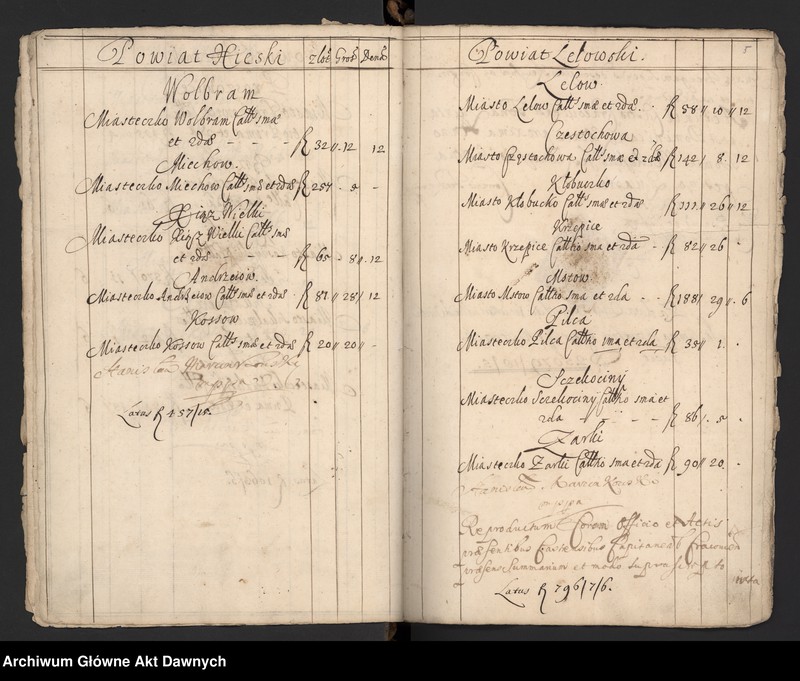 Powiat Xieski zlot Gros Denr
Wolbram
Miasteczko Wolbram Catt smæ
et 2dæ - - - ꝶ 32 ״ 12 12
Miechow.
Miasteczko Miechow Catt smæ et 2dæ ꝶ 257 - 9 -
Xiąz Wielki
Miasteczko Xiąz Wielki Catt smæ
et 2dæ - - - ꝶ 65 - 8 ״ 12
Andrzeiow.
Miasteczko Andrzeiow Catt smæ et 2dæ ꝶ 81 ״ 28 12
Kossow
Miasteczko Kossow Catt smæ et 2dæ ꝶ 20 ״ 20 ״ -
Stanisław
Latus ꝶ 457/18.
Powiat Lelowski. 5
Lelow
Miasto Lelow Catt smæ et 2dæ ꝶ 58 ״ 10 ״ 12
Częstochowa
Miasto Częstochowa Catt smæ et 2dæ ꝶ 142 8. 12
Kłobucko
Miasto Kłobucko Catt smæ et 2dæ ꝶ 111 ״ 26 ״ 12
Krzepice
Miasto Krzepice Cattho sma et 2da - ꝶ 82 ״ 26 -
Mstow
Miasto Mstow Cattho sma et 2da - - ꝶ 188 29 ״ 6
Pilca
Miasteczko Pilca Cattho sma et 2da ꝶ 35 ״ 1.
Sczekociny
Miasteczko Sczekociny Cattho sma et
2da - - - ꝶ 86 5
Zarki
Miasteczko Zarki Cattho sma et 2da ꝶ 90 ״ 20.
Stanisław
Reproductum Coram Officio et Actis
præsentibus Castrensibus Capitanealib Cracovien
præsens Summarium et modo supra scripto
Latus ꝶ 796/7/6.
Archiwum Główne Akt Dawnych